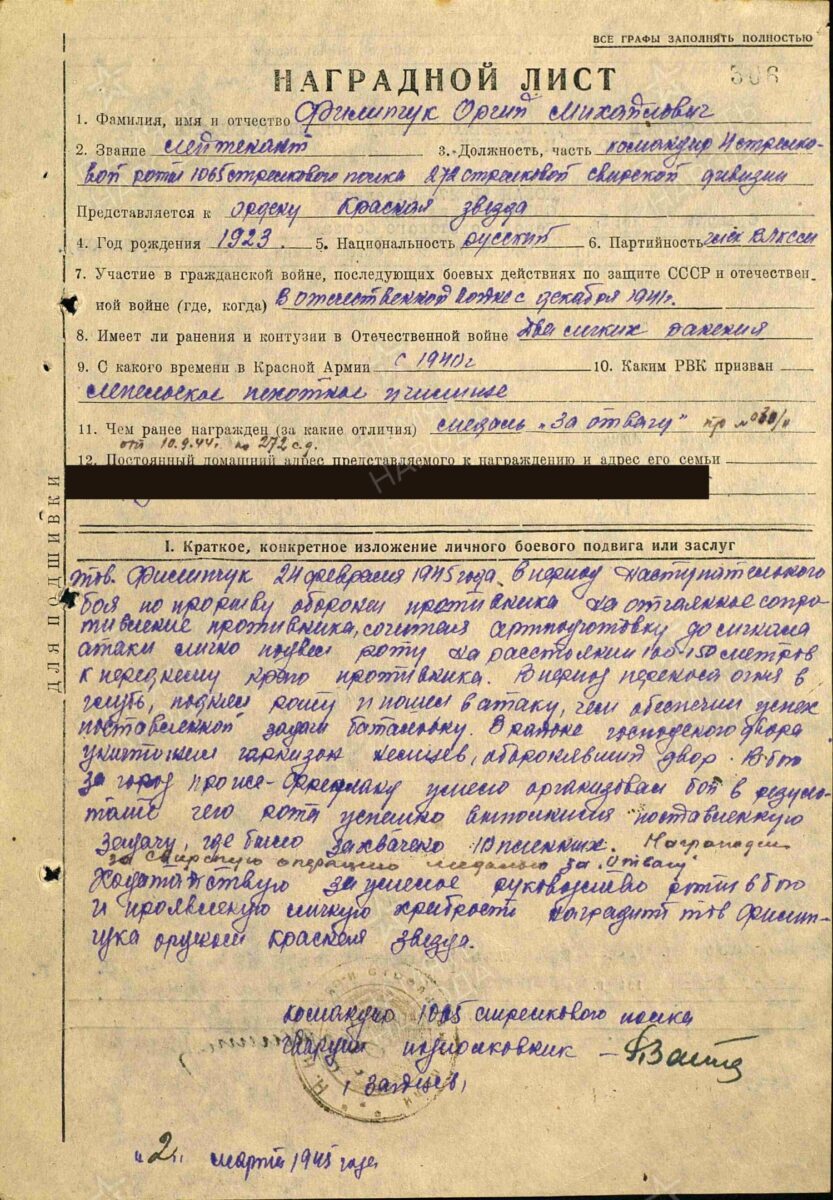 ВСЕ ГРАФЫ ЗАПОЛНЯТЬ ПОЛНОСТЬЮ
306
НАГРАДНОЙ ЛИСТ
1. Фамилия, имя и отчество Филипчук Михайлович
2. Звание лейтенант 3. Должность, часть командир 4 стрелко-
вой роты 1065 стрелкового полка 272 стрелковой свирской дивизии
Представляется к ордену Красная звезда
4. Год рождения 1923. 5. Национальность русский 6. Партийность член ВЛКСМ
7. Участие в гражданской войне, последующих боевых действиях по защите СССР и отечествен-
ной войне (где, когда) В отечественной войне с декабря 1941г.
8. Имеет ли ранения и контузии в Отечественной войне Два легких ранения
9. С какого времени в Красной Армии с 1940г 10. Каким РВК призван
Лепельское пехотное училище
11. Чем ранее награжден (за какие отличия) медаль "За отвагу" пр №
от 10.9.44г. по 272 с.д.
12. Постоянный домашний адрес представляемого к награждению и адрес его семьи
ДЛЯ ПОДШИВКИ
I. Краткое, конкретное изложение личного боевого подвига или заслуг
тов. Филипчук 24 февраля 1945 года. В период наступательного
боя по прорыву обороны противника на отчаянное сопро-
тивление противника, сочетая артподготовку до сигнала
атаки лично подвел роту на расстоянии 100-150 метров
к переднему краю противника. В период переноса огня в
глубь, поднял роту и пошел в атаку, чем обеспечил успех
поставленной задачи батальону. В районе господского двора
уничтожил гарнизон немцев, оборонявший двор. В бою
за город умело организовал бой в резуль-
тате чего рота успешно выполнила поставленную
задачу, где было захвачено 10 пленных. Награжден
за Свирскую операцию медалью за "Отвагу"
Ходатайствую за умелое руководство роты в бою
и проявленую личную храбрость наградить тов Филип-
чука орденом Красная звезда.
командир 1065 стрелкового полка
гвардии подполковник –
/ Зайцев /
"2" марта 1945 года